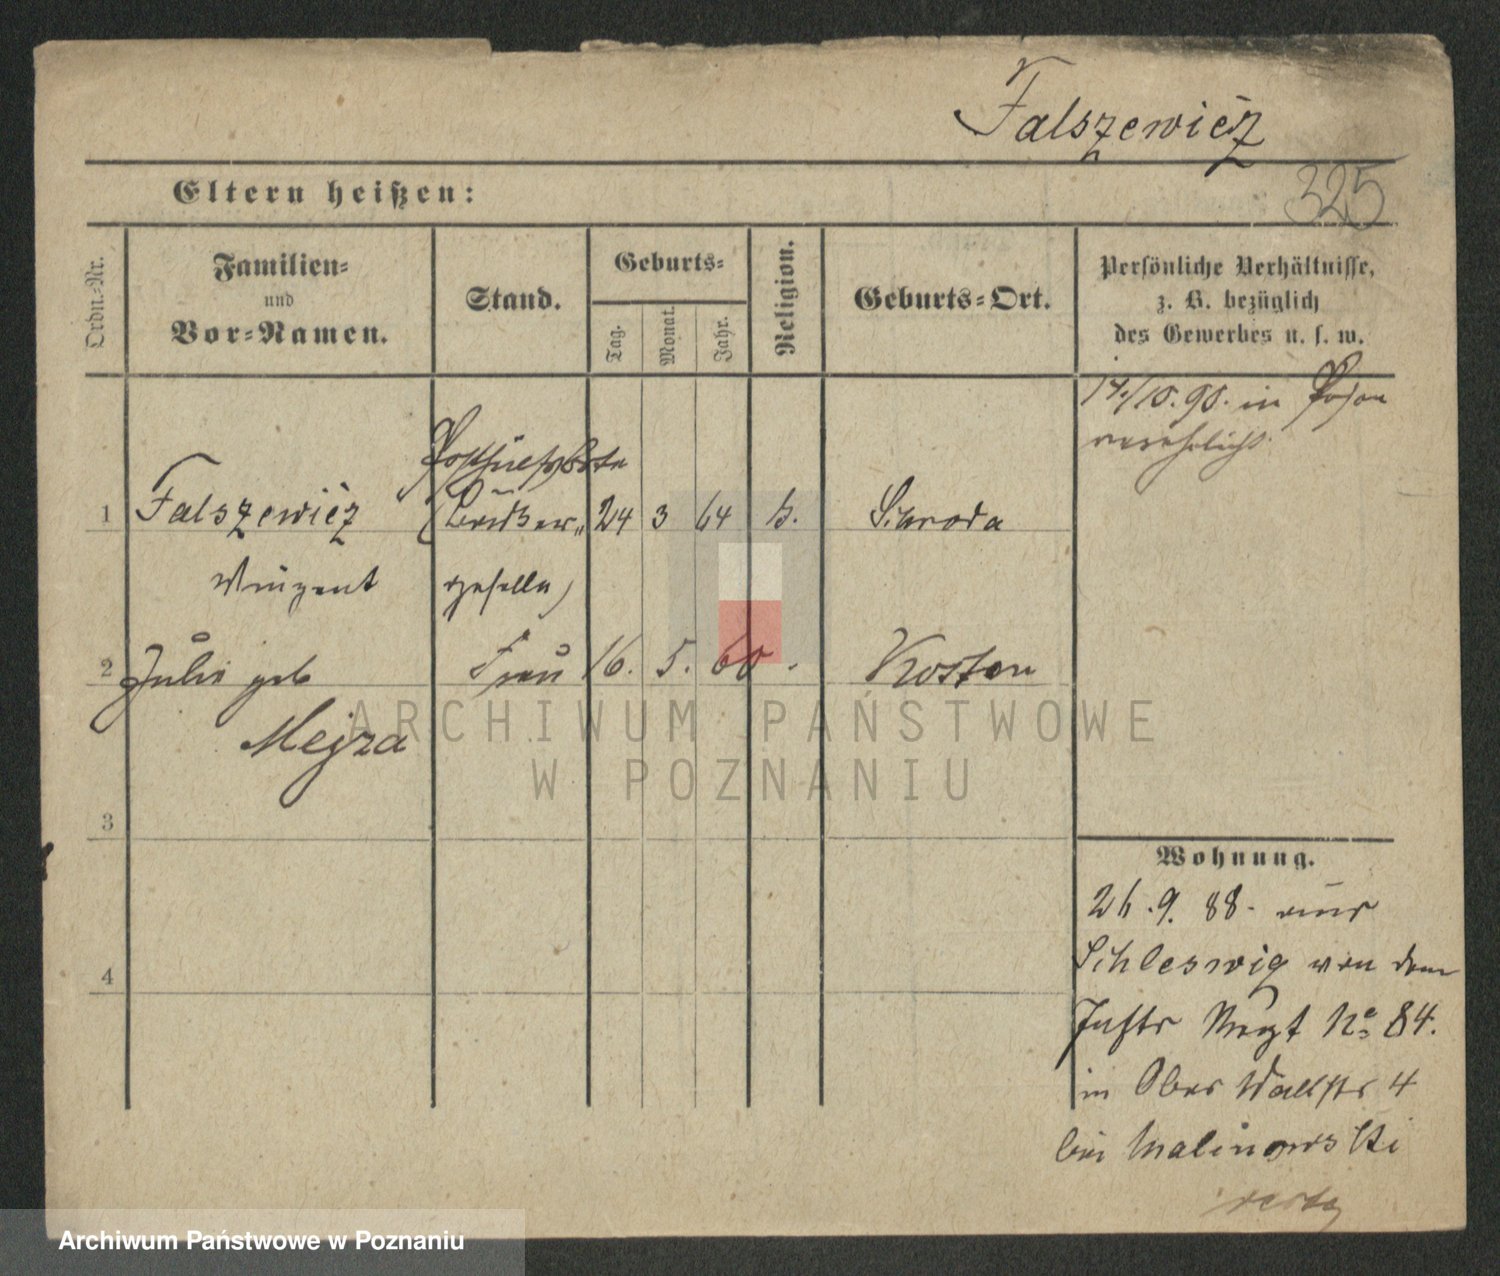 Falszewicz
325
Eltern heißen:
Ordn.-Nr.
Familien-
und
Vor-Namen.
Stand.
Geburts-
Tag.
Monat.
Jahr.
Religion.
Geburts-Ort.
Persönliche Verhältnisse,
z. B. bezüglich
des Gewerbes u. s. w.
14/10.90. in Posen
verehelicht.
1 Falszewicz 24 3 64 k. Schroda
Vinzent geselle)
2 Julie geb Frau 16. 5. 60 Kosten
Mejza
3
4
Wohnung.
26.9.88. aus
Schleswig von dem
Inftr Regt No 84.
in Ober Wallstr 4
bei Malinowski
ARCHIWUM PAŃSTWOWE
W POZNANIU
Archiwum Państwowe w Poznaniu